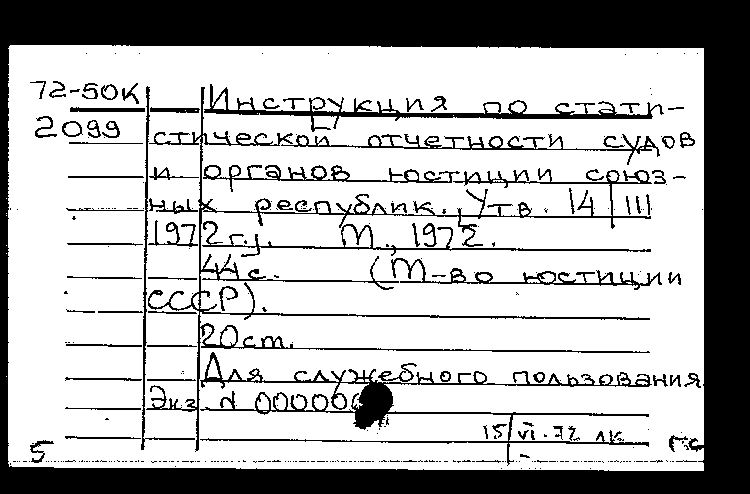 72-50К Инструкция по стати-
2099 стической отчетности судов
и органов юстиции союз-
ных республик. [Утв. 14/III
1972 г.]. М., 1972.
44 с. (М-во юстиции
СССР).
20 ст.
Для служебного пользования
Экз. N 000000
15/VI-72 лк гс
5